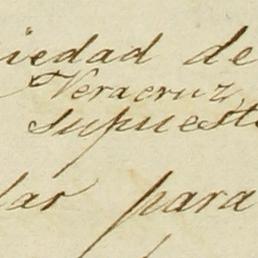 iedad de
Veracruz,
supuesto
lar para